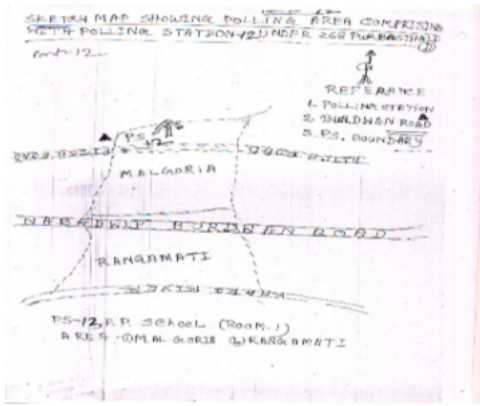 SKETCH MAP SHOWING POLLING AREA COMPRISING
WITH POLLING STATION-12 UNDER 268 PURBASTHALI
Part-12
REFERANCE
1. POLLING STATION
2. BURDWAN ROAD
3. P.S. BOUNDARY
P.S
12
MALGORIA
NABADWIP BURDWAN ROAD
RANGAMATI
PS-12, F.P. School (ROOM.1)
AREA-① MALGORIA ② RANGAMATI